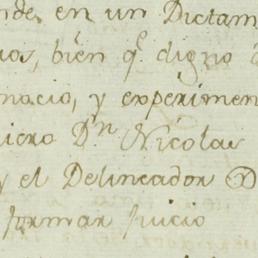 nde en un Dictam
ios, bien q.e digno d
nacio, y experimen
niero D.n Nicolas
y el Delineador D
formar Juicio